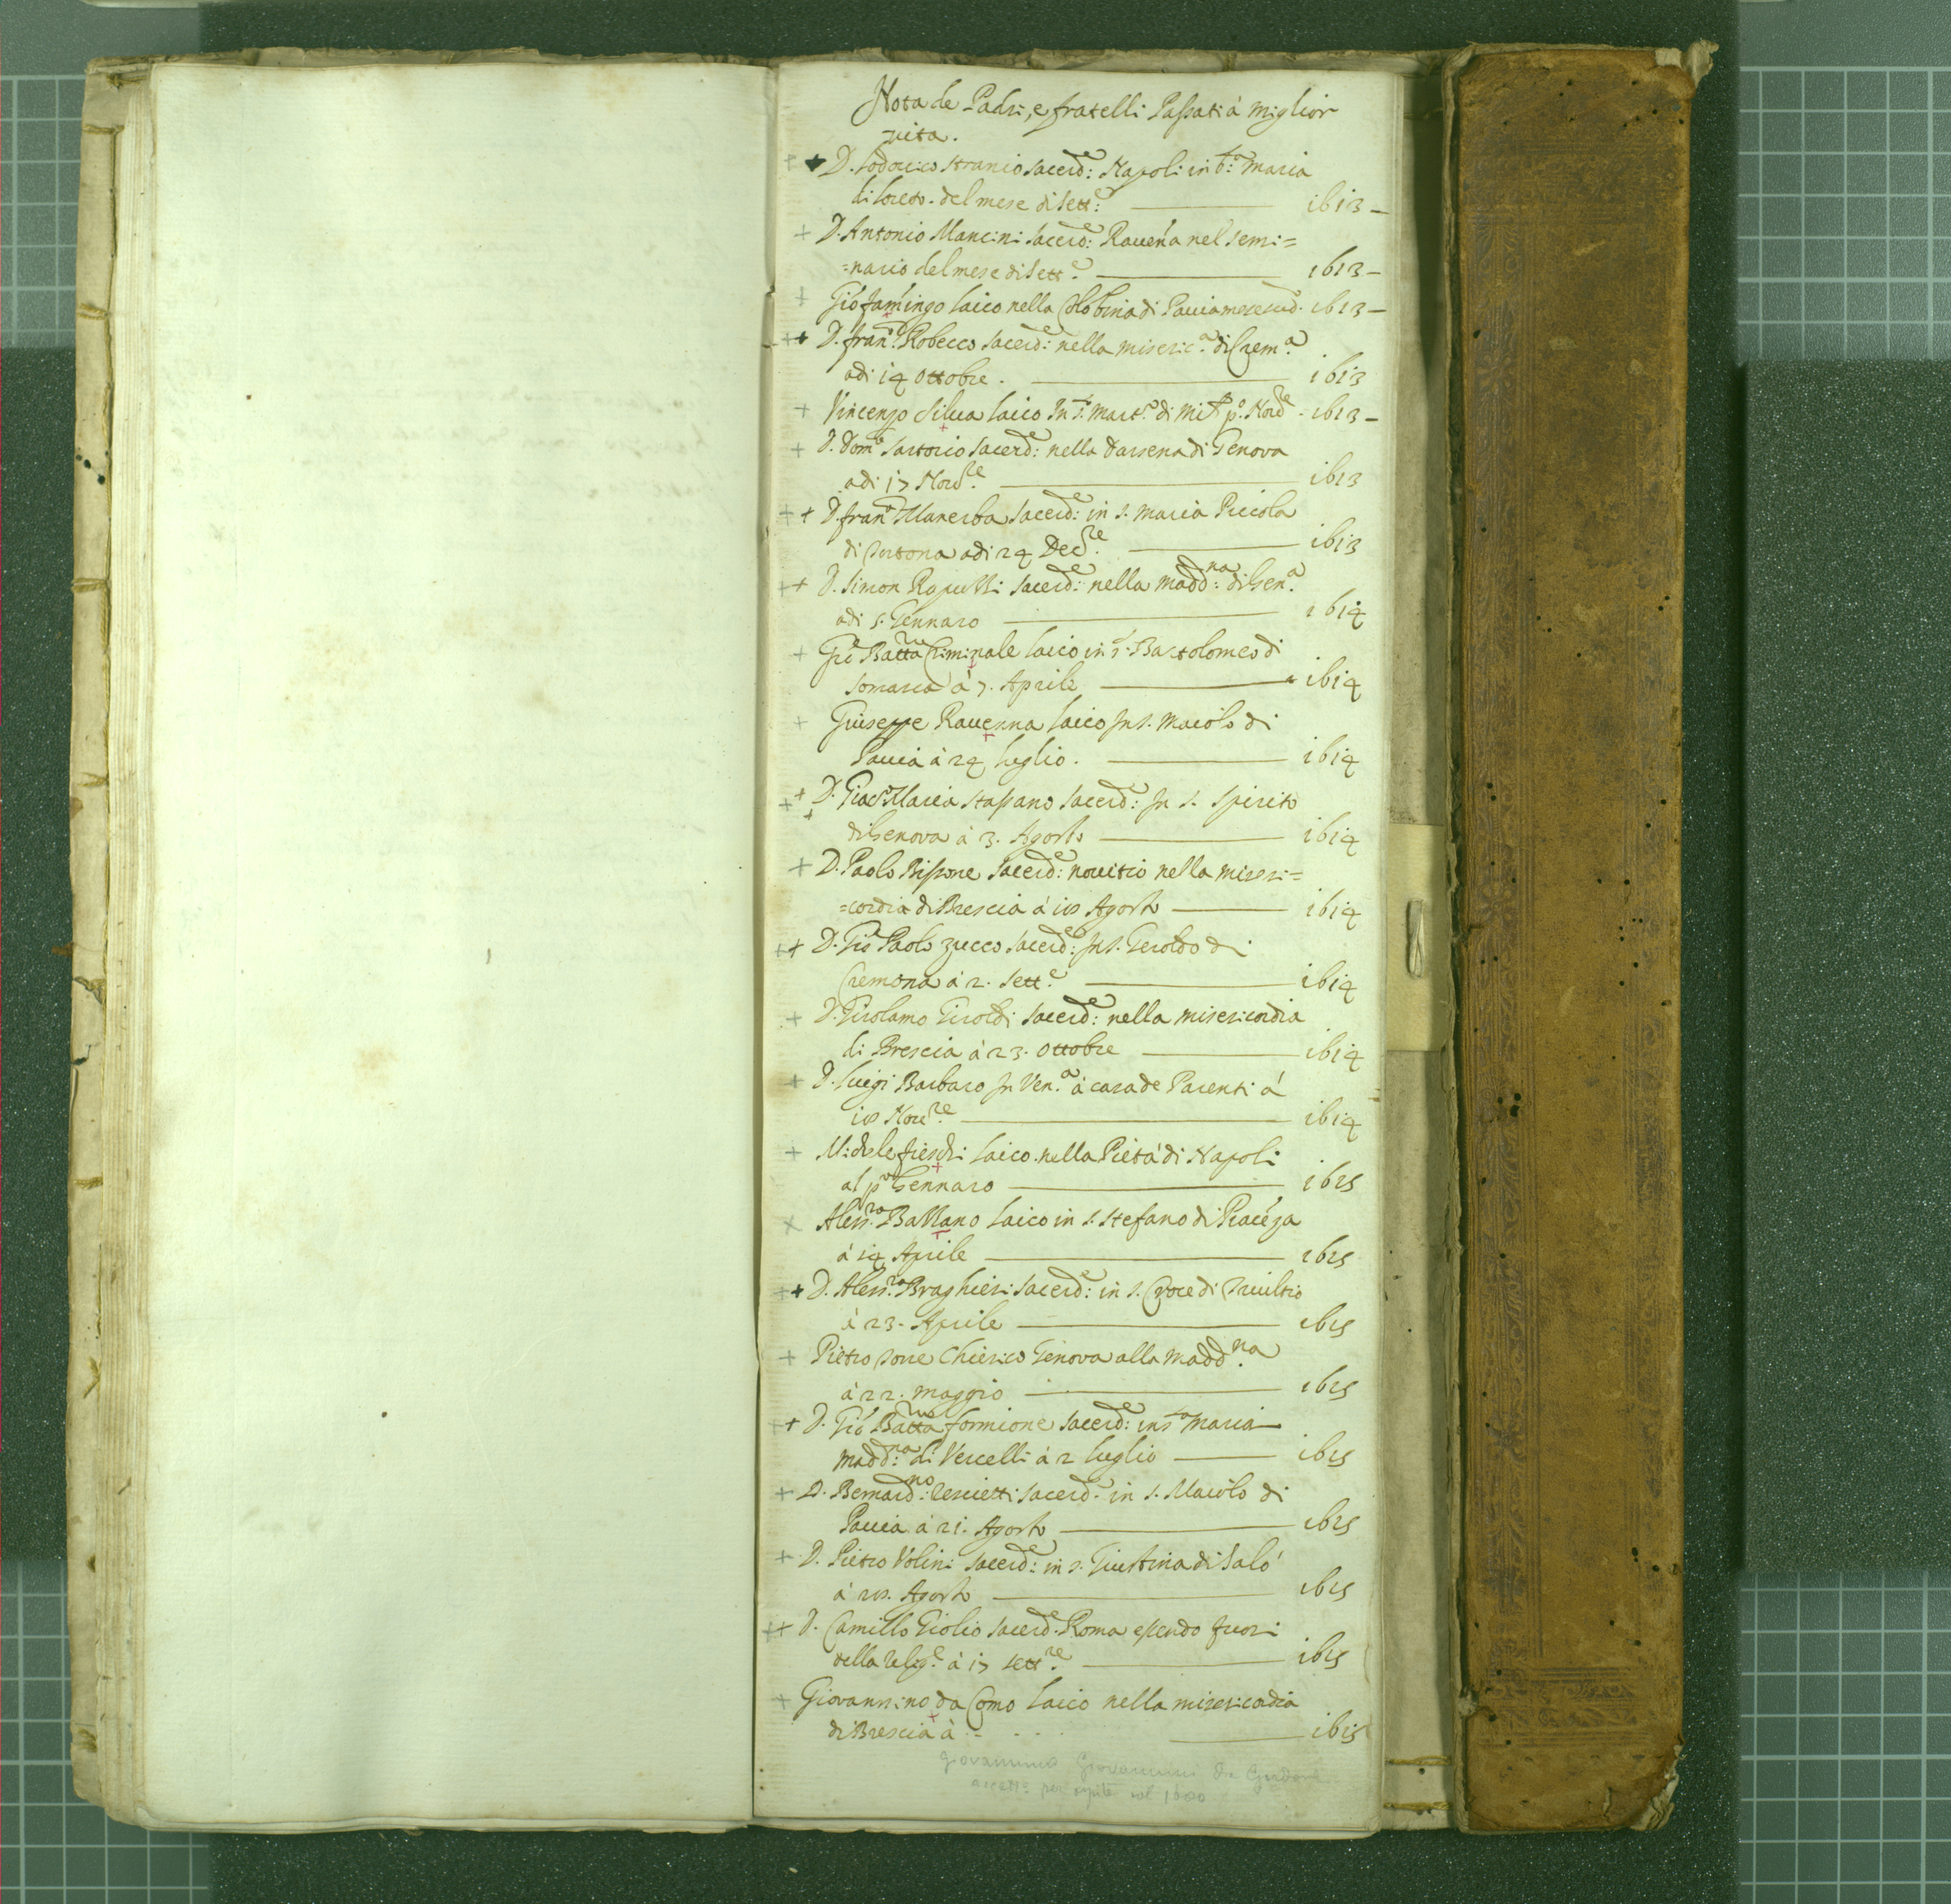 Nota de Padri, e fratelli Passati à miglior
vita.
D. Lodovico Stranio sacerd:e Napoli in S.ta Maria
di loreto. del mese di Sett:e 1613
D. Antonio Mancini sacerd:e Raueña nel semi=
=nario del mese di Sett.e 1613
Gio: laico nella Colobina di Pauia 1613
D. Fran.o Robecco sacerd:e nella miseric.a di Crem.a
adi 14 ottobre. 1613
Vincenzo Silua laico In S. Mart.o di Mil.o p.o Nov.re 1613
D. Dom.o Sartorio sacerd:e nella darsena di Genova
adi 17 Nov.re 1613
D. Fran.o Manerba sacerd:e in S. Maria Piccola
di Tortona adi 24 Dec.re 1613
D. Simon sacerd:e nella Madd:na di Gen.a
adi 5. Gennaro 1614
Gio Batta Criminale laico in S. Bartolomeo di
Somasca à 7. Aprile 1614
Giuseppe Rauenna laico In S. Maiolo di
Pauia à 24 luglio. 1614
D. Giac.o Maria Stassano sacerd:e In S. Spirito
di Genova à 3. Agosto 1614
D. Paolo Bissone sacerd:e nouitio nella miseri=
=cordia di Brescia à 10 Agosto 1614
D. Gio Paolo Zucco sacerd:e In S. Geroldo di
Cremona à 2. Sett.e 1614
D. Girolamo Giroldi sacerd:e nella misericordia
di Brescia à 23. ottobre 1614
D. Luigi Barbaro In Ven.a à casa de Parenti à
10 Nov.re 1614
Michele fieschi laico nella Pietà di Napoli
al p.o Gennaro 1615
Aless.ro Ballano laico in S. Stefano di Piacéza
à 14 Aprile 1615
D. Aless.ro Braghieri sacerd:e in S. Croce di Triultio
à 23. Aprile 1615
Pietro Torre Chierico Genova alla Madd.na
à 22. maggio 1615
D. Gio Batta formione sacerd:e in S.ta Maria
Madd:na di Vercelli à 2 luglio 1615
D. Bernard:no sacerd.e in S. Maiolo di
Pauia à 21. Agosto 1615
D. Pietro Volini sacerd:e in S. Giustina di Salò
à 20. Agosto 1615
D. Camillo Giolio sacerd.e Roma essendo fuori
della Relig.e à 17 Sett.re 1615
Giovannino da Como laico nella misericordia
di Brescia à 1615
Giovannino Giovannini da
accett.o per ospite nel 1600